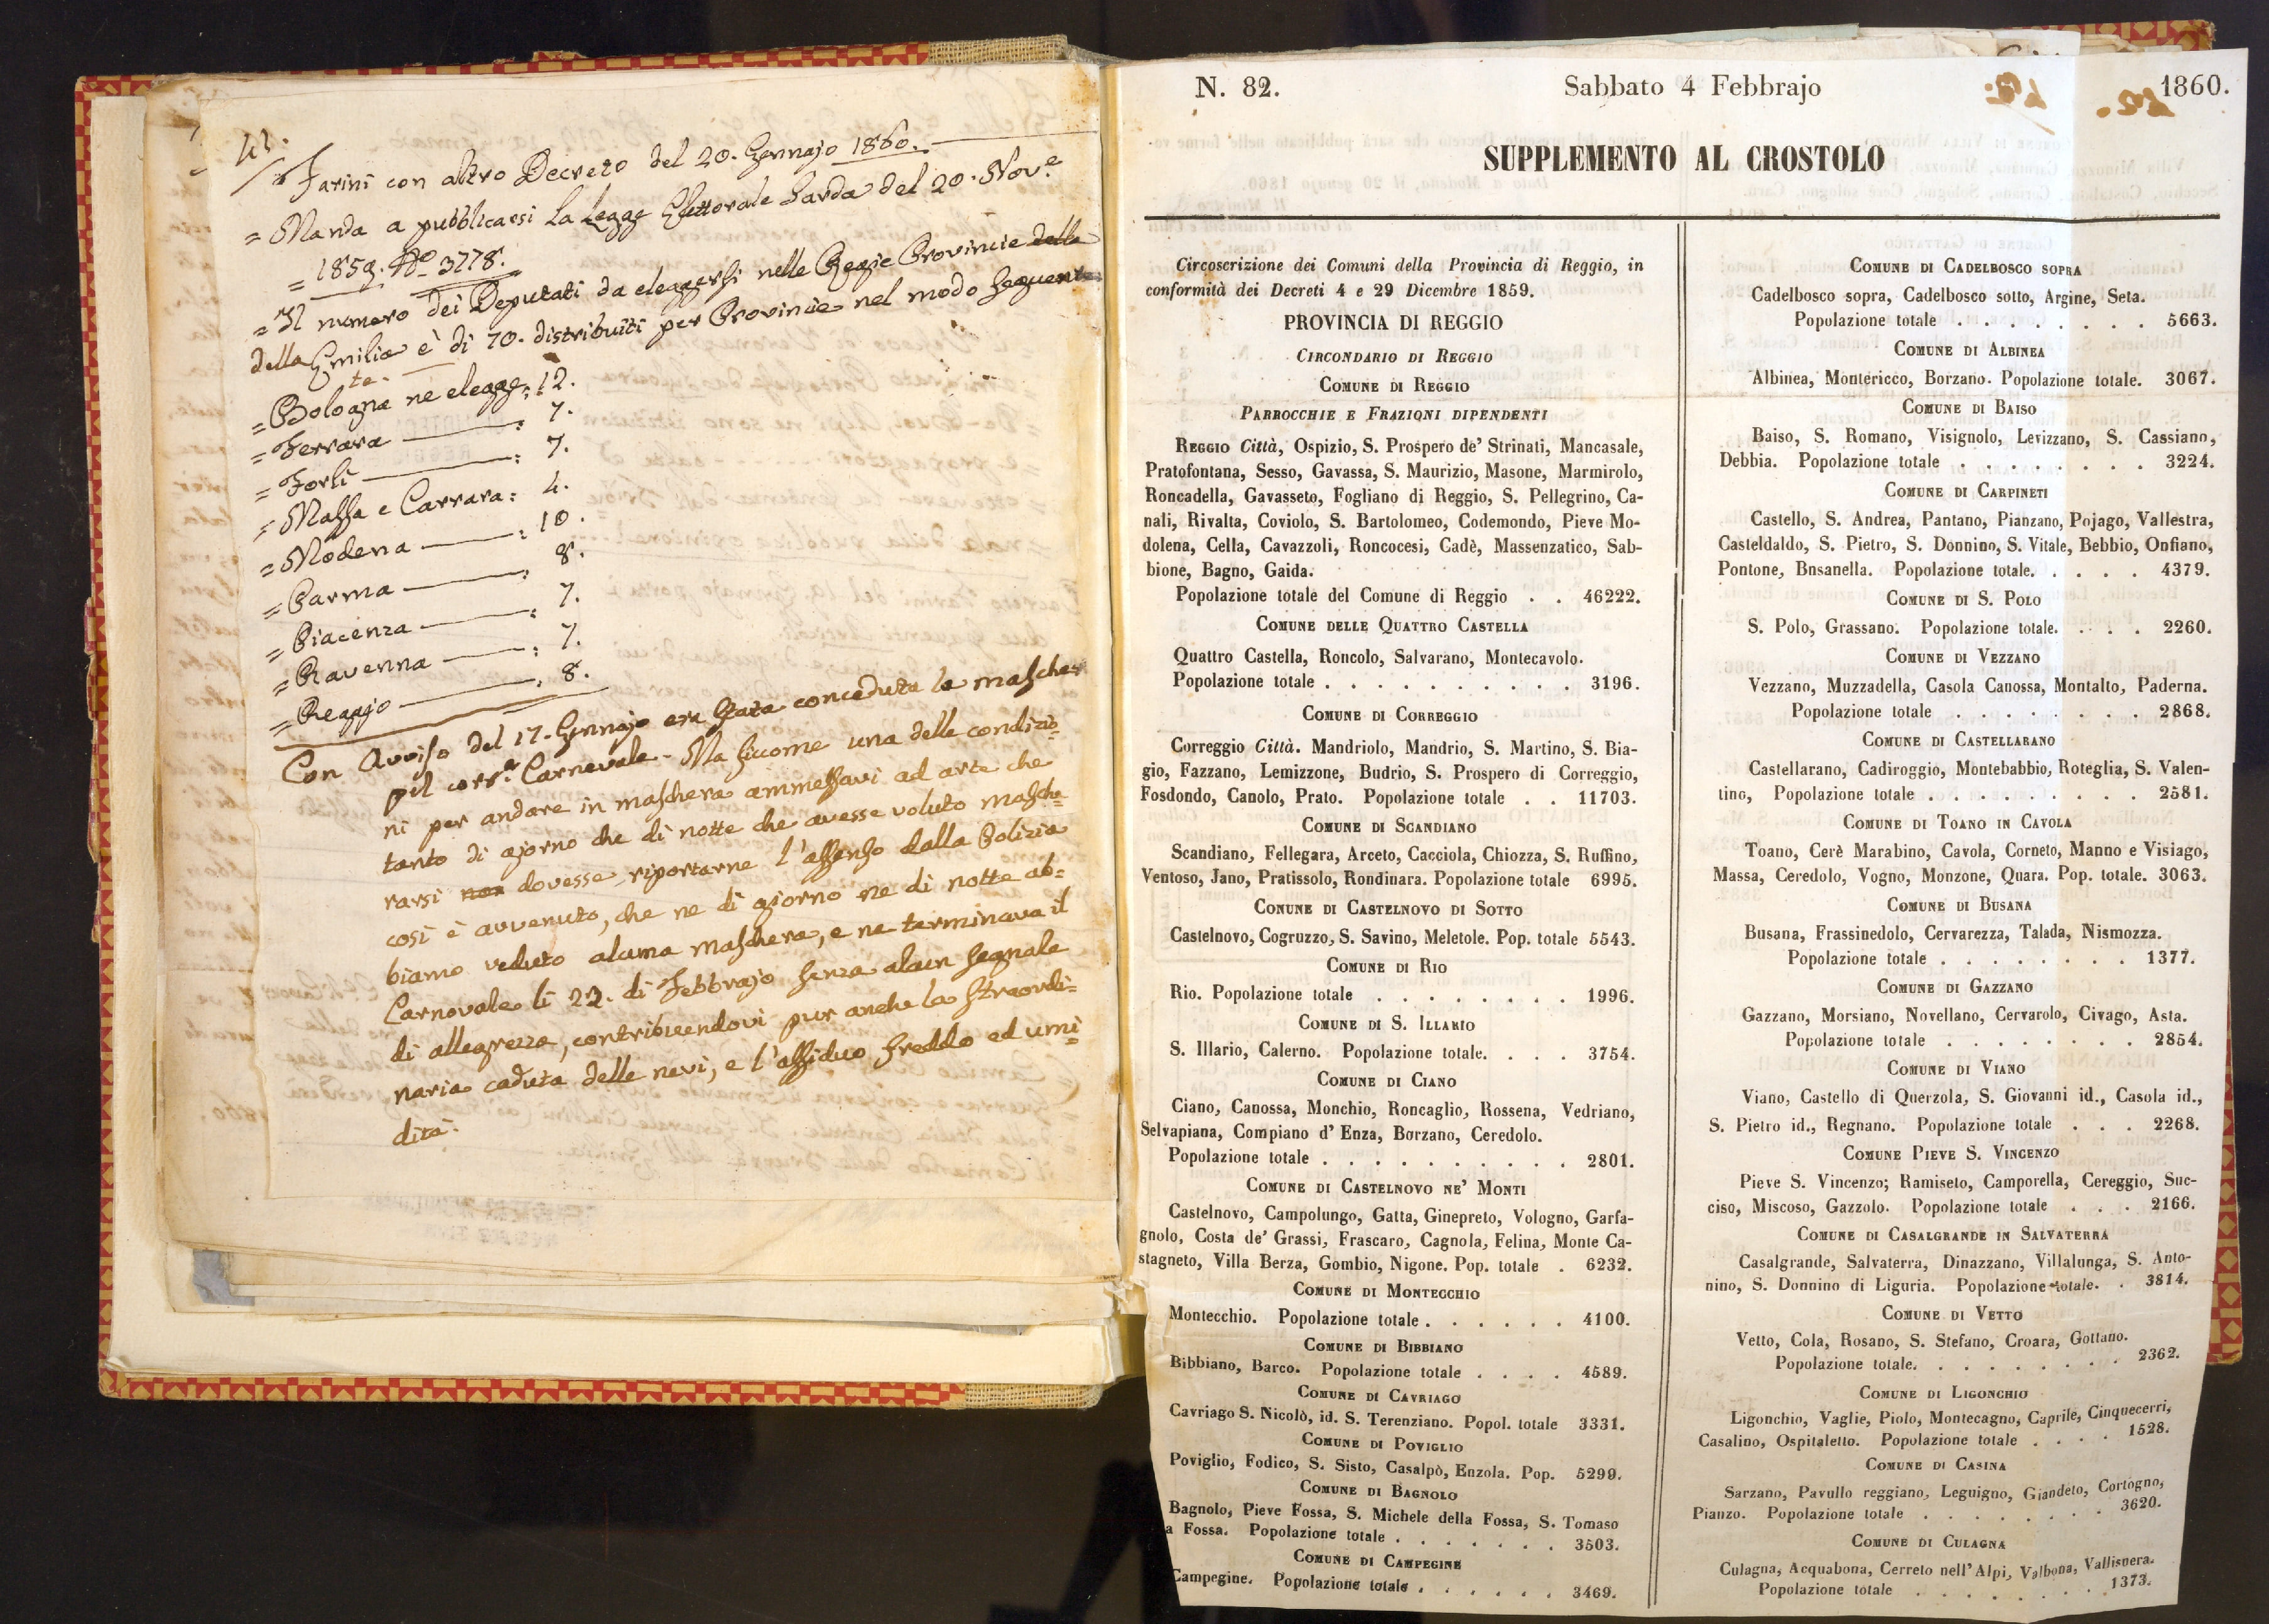 41.
Farini con altro Decreto del 20. Gennajo 1860.
= Manda a pubblicarsi la Legge Elettorale Sarda del 20. Nov.e
= 1859. No 3778.
= Il numero dei Deputati da eleggersi nelle Regie Provincie delle
della Emilia è di 70. distribuiti per Provincie nel modo seguente
te.
= Bologna ne elegge: 12.
= Ferrara : 7.
= Forlì : 7.
= Massa e Carrara: 4.
= Modena : 10.
= Parma : 8.
= Piacenza : 7.
= Ravenna : 7.
= Reggio : 8.
Con Avviso del 17. Gennajo era stata conceduta la mascher
pel corr.e Carnevale - Ma siccome una delle condizio=
ni per andare in maschera ammessavi ad arte che
tanto di giorno che di notte che avesse voluto masche=
rarsi non dovesse riportarne l'assenso dalla Polizia
così è avvenuto, che ne di giorno ne di notte ab=
biamo veduto alcuna maschera, e ne terminava il
Carnovale li 22. di Febbrajo senza alcun segnale
di allegrezza, contribuendovi pur anche la straordi=
naria caduta delle nevi, e l'assiduo freddo ed umi=
dità.
N. 82. Sabbato 4 Febbrajo 1860.
SUPPLEMENTO AL CROSTOLO
Circoscrizione dei Comuni della Provincia di Reggio, in
conformità dei Decreti 4 e 29 Dicembre 1859.
PROVINCIA DI REGGIO
CIRCONDARIO DI REGGIO
COMUNE DI REGGIO
PARROCCHIE E FRAZIONI DIPENDENTI
REGGIO Città, Ospizio, S. Prospero de' Strinati, Mancasale,
Pratofontana, Sesso, Gavassa, S. Maurizio, Masone, Marmirolo,
Roncadella, Gavasseto, Fogliano di Reggio, S. Pellegrino, Ca-
nali, Rivalta, Coviolo, S. Bartolomeo, Codemondo, Pieve Mo-
dolena, Cella, Cavazzoli, Roncocesi, Cadè, Massenzatico, Sab-
bione, Bagno, Gaida.
Popolazione totale del Comune di Reggio . . 46222.
COMUNE DELLE QUATTRO CASTELLA
Quattro Castella, Roncolo, Salvarano, Montecavolo.
Popolazione totale . . . . . . . . . . 3196.
COMUNE DI CORREGGIO
Correggio Città. Mandriolo, Mandrio, S. Martino, S. Bia-
gio, Fazzano, Lemizzone, Budrio, S. Prospero di Correggio,
Fosdondo, Canolo, Prato. Popolazione totale . . 11703.
COMUNE DI SCANDIANO
Scandiano, Fellegara, Arceto, Cacciola, Chiozza, S. Ruffino,
Ventoso, Jano, Pratissolo, Rondinara. Popolazione totale 6995.
CONUNE DI CASTELNOVO DI SOTTO
Castelnovo, Cogruzzo, S. Savino, Meletole. Pop. totale 5543.
COMUNE DI RIO
Rio. Popolazione totale . . . . . . . . 1996.
COMUNE DI S. ILLARIO
S. Illario, Calerno. Popolazione totale. . . . 3754.
COMUNE DI CIANO
Ciano, Canossa, Monchio, Roncaglio, Rossena, Vedriano,
Selvapiana, Compiano d' Enza, Borzano, Ceredolo.
Popolazione totale . . . . . . . . . . 2801.
COMUNE DI CASTELNOVO NE' MONTI
Castelnovo, Campolungo, Gatta, Ginepreto, Vologno, Garfa-
gnolo, Costa de' Grassi, Frascaro, Cagnola, Felina, Monte Ca-
stagneto, Villa Berza, Gombio, Nigone. Pop. totale . 6232.
COMUNE DI MONTECCHIO
Montecchio. Popolazione totale . . . . . . 4100.
COMUNE DI BIBBIANO
Bibbiano, Barco. Popolazione totale . . . . 4589.
COMUNE DI CAVRIAGO
Cavriago S. Nicolò, id. S. Terenziano. Popol. totale 3331.
COMUNE DI POVIGLIO
Poviglio, Fodico, S. Sisto, Casalpò, Enzola. Pop. 5299.
COMUNE DI BAGNOLO
Bagnolo, Pieve Fossa, S. Michele della Fossa, S. Tomaso
a Fossa. Popolazione totale . . . . . . . 3503.
COMUNE DI CAMPEGINE
Campegine. Popolazione totale . . . . . . 3469.
COMUNE DI CADELBOSCO SOPRA
Cadelbosco sopra, Cadelbosco sotto, Argine, Seta.
Popolazione totale . . . . . . . . 5663.
COMUNE DI ALBINEA
Albinea, Montericco, Borzano. Popolazione totale. 3067.
COMUNE DI BAISO
Baiso, S. Romano, Visignolo, Levizzano, S. Cassiano,
Debbia. Popolazione totale . . . . . . . . 3224.
COMUNE DI CARPINETI
Castello, S. Andrea, Pantano, Pianzano, Pojago, Vallestra,
Casteldaldo, S. Pietro, S. Donnino, S. Vitale, Bebbio, Onfiano,
Pontone, Bnsanella. Popolazione totale. . . . . 4379.
COMUNE DI S. POLO
S. Polo, Grassano. Popolazione totale. . . . 2260.
COMUNE DI VEZZANO
Vezzano, Muzzadella, Casola Canossa, Montalto, Paderna.
Popolazione totale . . . . . . . . 2868.
COMUNE DI CASTELLARANO
Castellarano, Cadiroggio, Montebabbio, Roteglia, S. Valen-
tino, Popolazione totale . . . . . . . . . 2581.
COMUNE DI TOANO IN CAVOLA
Toano, Cerè Marabino, Cavola, Corneto, Manno e Visiago,
Massa, Ceredolo, Vogno, Monzone, Quara. Pop. totale. 3063.
COMUNE DI BUSANA
Busana, Frassinedolo, Cervarezza, Talada, Nismozza.
Popolazione totale . . . . . . . . 1377.
COMUNE DI GAZZANO
Gazzano, Morsiano, Novellano, Cervarolo, Civago, Asta.
Popolazione totale . . . . . . . . 2854.
COMUNE DI VIANO
Viano, Castello di Querzola, S. Giovanni id., Casola id.,
S. Pietro id., Regnano. Popolazione totale . . . 2268.
COMUNE PIEVE S. VINCENZO
Pieve S. Vincenzo; Ramiseto, Camporella, Cereggio, Suc-
ciso, Miscoso, Gazzolo. Popolazione totale . . . 2166.
COMUNE DI CASALGRANDE IN SALVATERRA
Casalgrande, Salvaterra, Dinazzano, Villalunga, S. Anto-
nino, S. Donnino di Liguria. Popolazione totale. . 3814.
COMUNE DI VETTO
Vetto, Cola, Rosano, S. Stefano, Croara, Gottano.
Popolazione totale. . . . . . . . . 2362.
COMUNE DI LIGONCHIO
Ligonchio, Vaglie, Piolo, Montecagno, Caprile, Cinquecerri,
Casalino, Ospitaletto. Popolazione totale . . . . 1528.
COMUNE DI CASINA
Sarzano, Pavullo reggiano, Leguigno, Giandeto, Cortogno,
Pianzo. Popolazione totale . . . . . . . . 3620.
COMUNE DI CULAGNA
Culagna, Acquabona, Cerreto nell' Alpi, Valbona, Vallisnera.
Popolazione totale . . . . . . . . 1373.